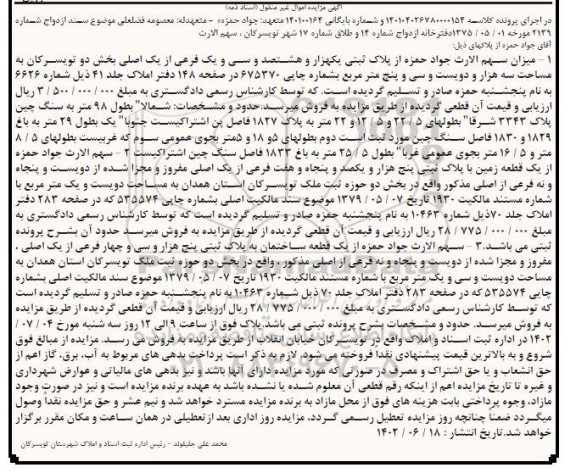 آگهی مزایده اموال غیر منقول (اسناد ذمه)
در اجرای پرونده کلاسه ۱۴۰۱۰۴۰۲۶۷۸۰۰۰۰۱۵۴ و شماره بایگانی ۱۴۰۱۰۰۱۶۴ متعهد: جواد حمزه - متعهدله: معصومه فضلعلی موضوع سند ازدواج شماره
۲۱۳۹ مورخه ۰۱ / ۰۵ / ۱۳۷۵ دفترخانه ازدواج شماره ۱۴ و طلاق شماره ۱۷ شهر تویسرکان ، سهم الارث
آقای جواد حمزه از پلاکهای ذیل:
۱ - میزان سهم الارث جواد حمزه از پلاک ثبتی یکهزار و هشتصد و سی و یک فرعی از یک اصلی بخش دو تویسرکان به
مساحت سه هزار و دویست و پنج متر مربع بشماره چاپی ۶۷۵۳۷۰ در صفحه ۱۴۸ دفتر املاک جلد ۴۱ ذیل شماره ۶۶۲۶
به نام پنجشنبه حمزه صادر و تسلیم گردیده است. که توسط کارشناس رسمی دادگستری به مبلغ ۰۰۰ / ۰۰۰ / ۵۰۰ / ۳ ریال
ارزیابی و قیمت آن قطعی گردیده از طریق مزایده به فروش میرسد.حدود و مشخصات: شمالا" بطول ۹۸ متر به سنگ چین
پلاک ۳۳۴۳ شرقا" بطولهای ۵ / ۲۲ و ۵ / ۱۲ و ۲۲ متر به پلاک ۱۸۲۷ فاصل پن اشتراکیست جنوبا" یک بطول ۲۹ متر به باغ
۱۸۲۹ و ۱۸۳۰ فاصل سنگ چین مورد ثبت است دوم بطولهای ۵و ۱۸ و ۵متر بجوی عمومی سوم که غربیست بطولهای ۵ / ۸
متر و ۵ / ۱۶ متر بجوی عمومی غربا" بطول ۵ / ۲۵ متر به باغ ۱۸۳۲ فاصل سنگ چین اشتراکیست ۲ - سهم الارث جواد حمزه
از یک قطعه زمین با پلاک ثبتی پنج هزار و یکصد و پنجاه و هفت فرعی از یک اصلی مفروز و مجزا شده از دویست و پنجاه
و نه فرعی از اصلی مذکور واقع در بخش دو حوزه ثبت ملک تویسرکان استان همدان به مساحت دویست و یک متر مربع با
شماره مستند مالکیت ۱۹۳۰ تاریخ ۰۷ / ۰۵ / ۱۳۷۹ موضوع سند مالکیت اصلی بشماره چاپی ۵۳۵۵۷۴ که در صفحه ۲۸۳ دفتر
املاک جلد ۷۰ ذیل شماره ۱۰۴۶۳ به نام پنجشنبه حمزه صادر و تسلیم گردیده است که توسط کارشناس رسمی دادگستری به
مبلغ ۰۰۰ / ۰۰۰ / ۷۷۵ / ۲۸ ریال ارزیابی و قیمت آن قطعی گردیده از طریق مزایده به فروش میرسد حدود آن بشرح پرونده
ثبتی می باشد. ۳ - سهم الارث جواد حمزه از یک قطعه ساختمان به پلاک ثبتی پنج هزار و سی و چهار فرعی از یک اصلی ،
مفروز و مجزا شده از دویست و پنجاه و نه فرعی از اصلی مذکور ، واقع در بخش دو حوزه ثبت ملک تویسرکان استان همدان به
مساحت دویست و سی و یک متر مربع با شماره مستند مالکیت ۱۹۳۰ تاریخ ۰۷ / ۰۵ / ۱۳۷۹ موضوع سند مالکیت اصلی بشماره
چاپی ۵۳۵۵۷۴ که در صفحه ۲۸۳ دفتر املاک جلد ۷۰ ذیل شماره ۱۰۴۶۳ به نام پنجشنبه حمزه صادر و تسلیم گردیده است
که توسط کارشناس رسمی دادگستری به مبلغ ۰۰۰ / ۰۰۰ / ۷۷۵ / ۲۸ ریال ارزیابی و قیمت آن قطعی گردیده از طریق مزایده
به فروش میرسد. حدود و مشخصات بشرح پرونده ثبتی می باشد.پلاک فوق از ساعت ۹ الی ۱۲ روز سه شنبه مورخ ۰۴ / ۰۷ /
۱۴۰۲ در اداره ثبت اسناد و املاک واقع در تویسرکان خیابان انقلاب از طریق مزایده به فروش می رسد. مزایده از مبالغ فوق
شروع و به بالاترین قیمت پیشنهادی نقدا فروخته می شود. لازم به ذکر است پرداخت بدهی های مربوط به آب، برق، گاز اعم از
حق انشعاب و یا حق اشتراک و مصرف در صورتی که مورد مزایده دارای آنها باشد و نیز بدهی های مالیاتی و عوارض شهرداری
و غیره تا تاریخ مزایده اعم از اینکه رقم قطعی آن معلوم شده یا نشده باشد به عهده برنده مزایده است و نیز در صورت وجود
مازاد، وجوه پرداختی بابت هزینه های فوق از محل مازاد به برنده مزایده مسترد خواهد شد و نیم عشر و حق مزایده نقدا وصول
میگردد ضمنا چنانچه روز مزایده تعطیل رسمی گردد، مزایده روز اداری بعد از تعطیلی در همان ساعت و مکان مقرر برگزار
خواهد شد. تاریخ انتشار : ۱۸ / ۰۶ / ۱۴۰۲
محمد علی جلیلوند - رئیس اداره ثبت اسناد و املاک شهرستان تویسرکان